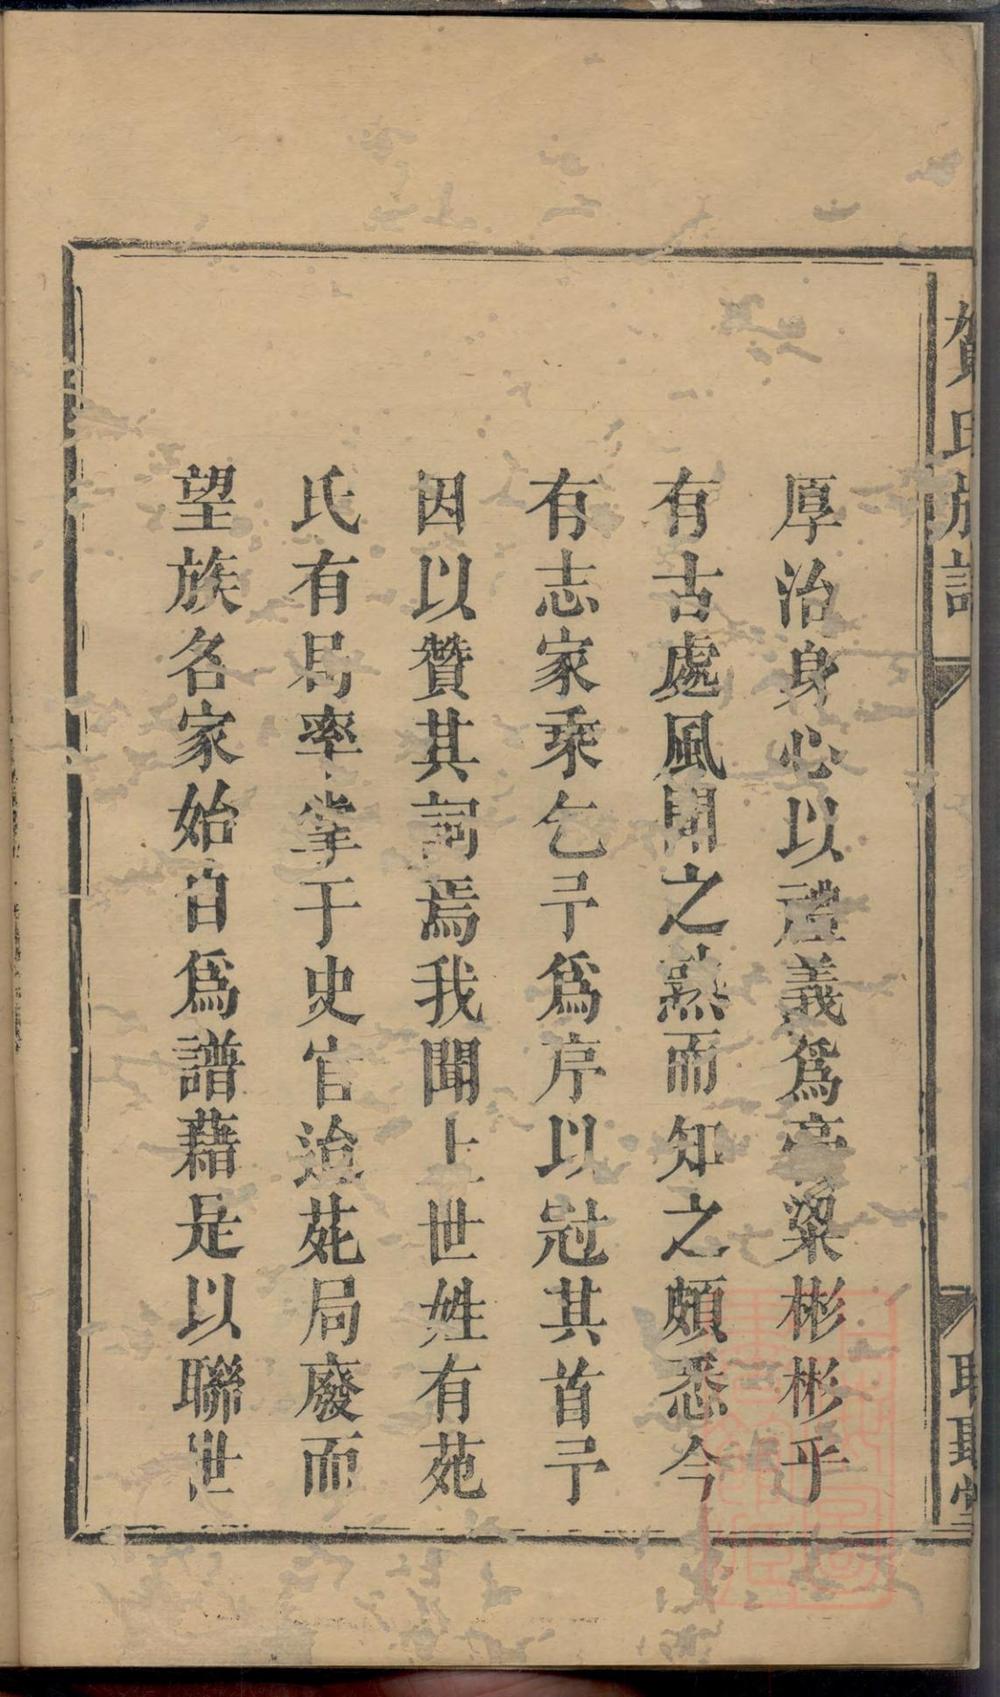 厚治身心以禮義爲膏粱彬彬乎
有古處風聞之熟而知之頗悉今
有志家乘乞予爲序以冠其首予
因以贊其詞焉我聞上世姓有苑
氏有局率掌于史官迨苑局廢而
望族名家始自爲譜藉是以聯世
賀氏族譜